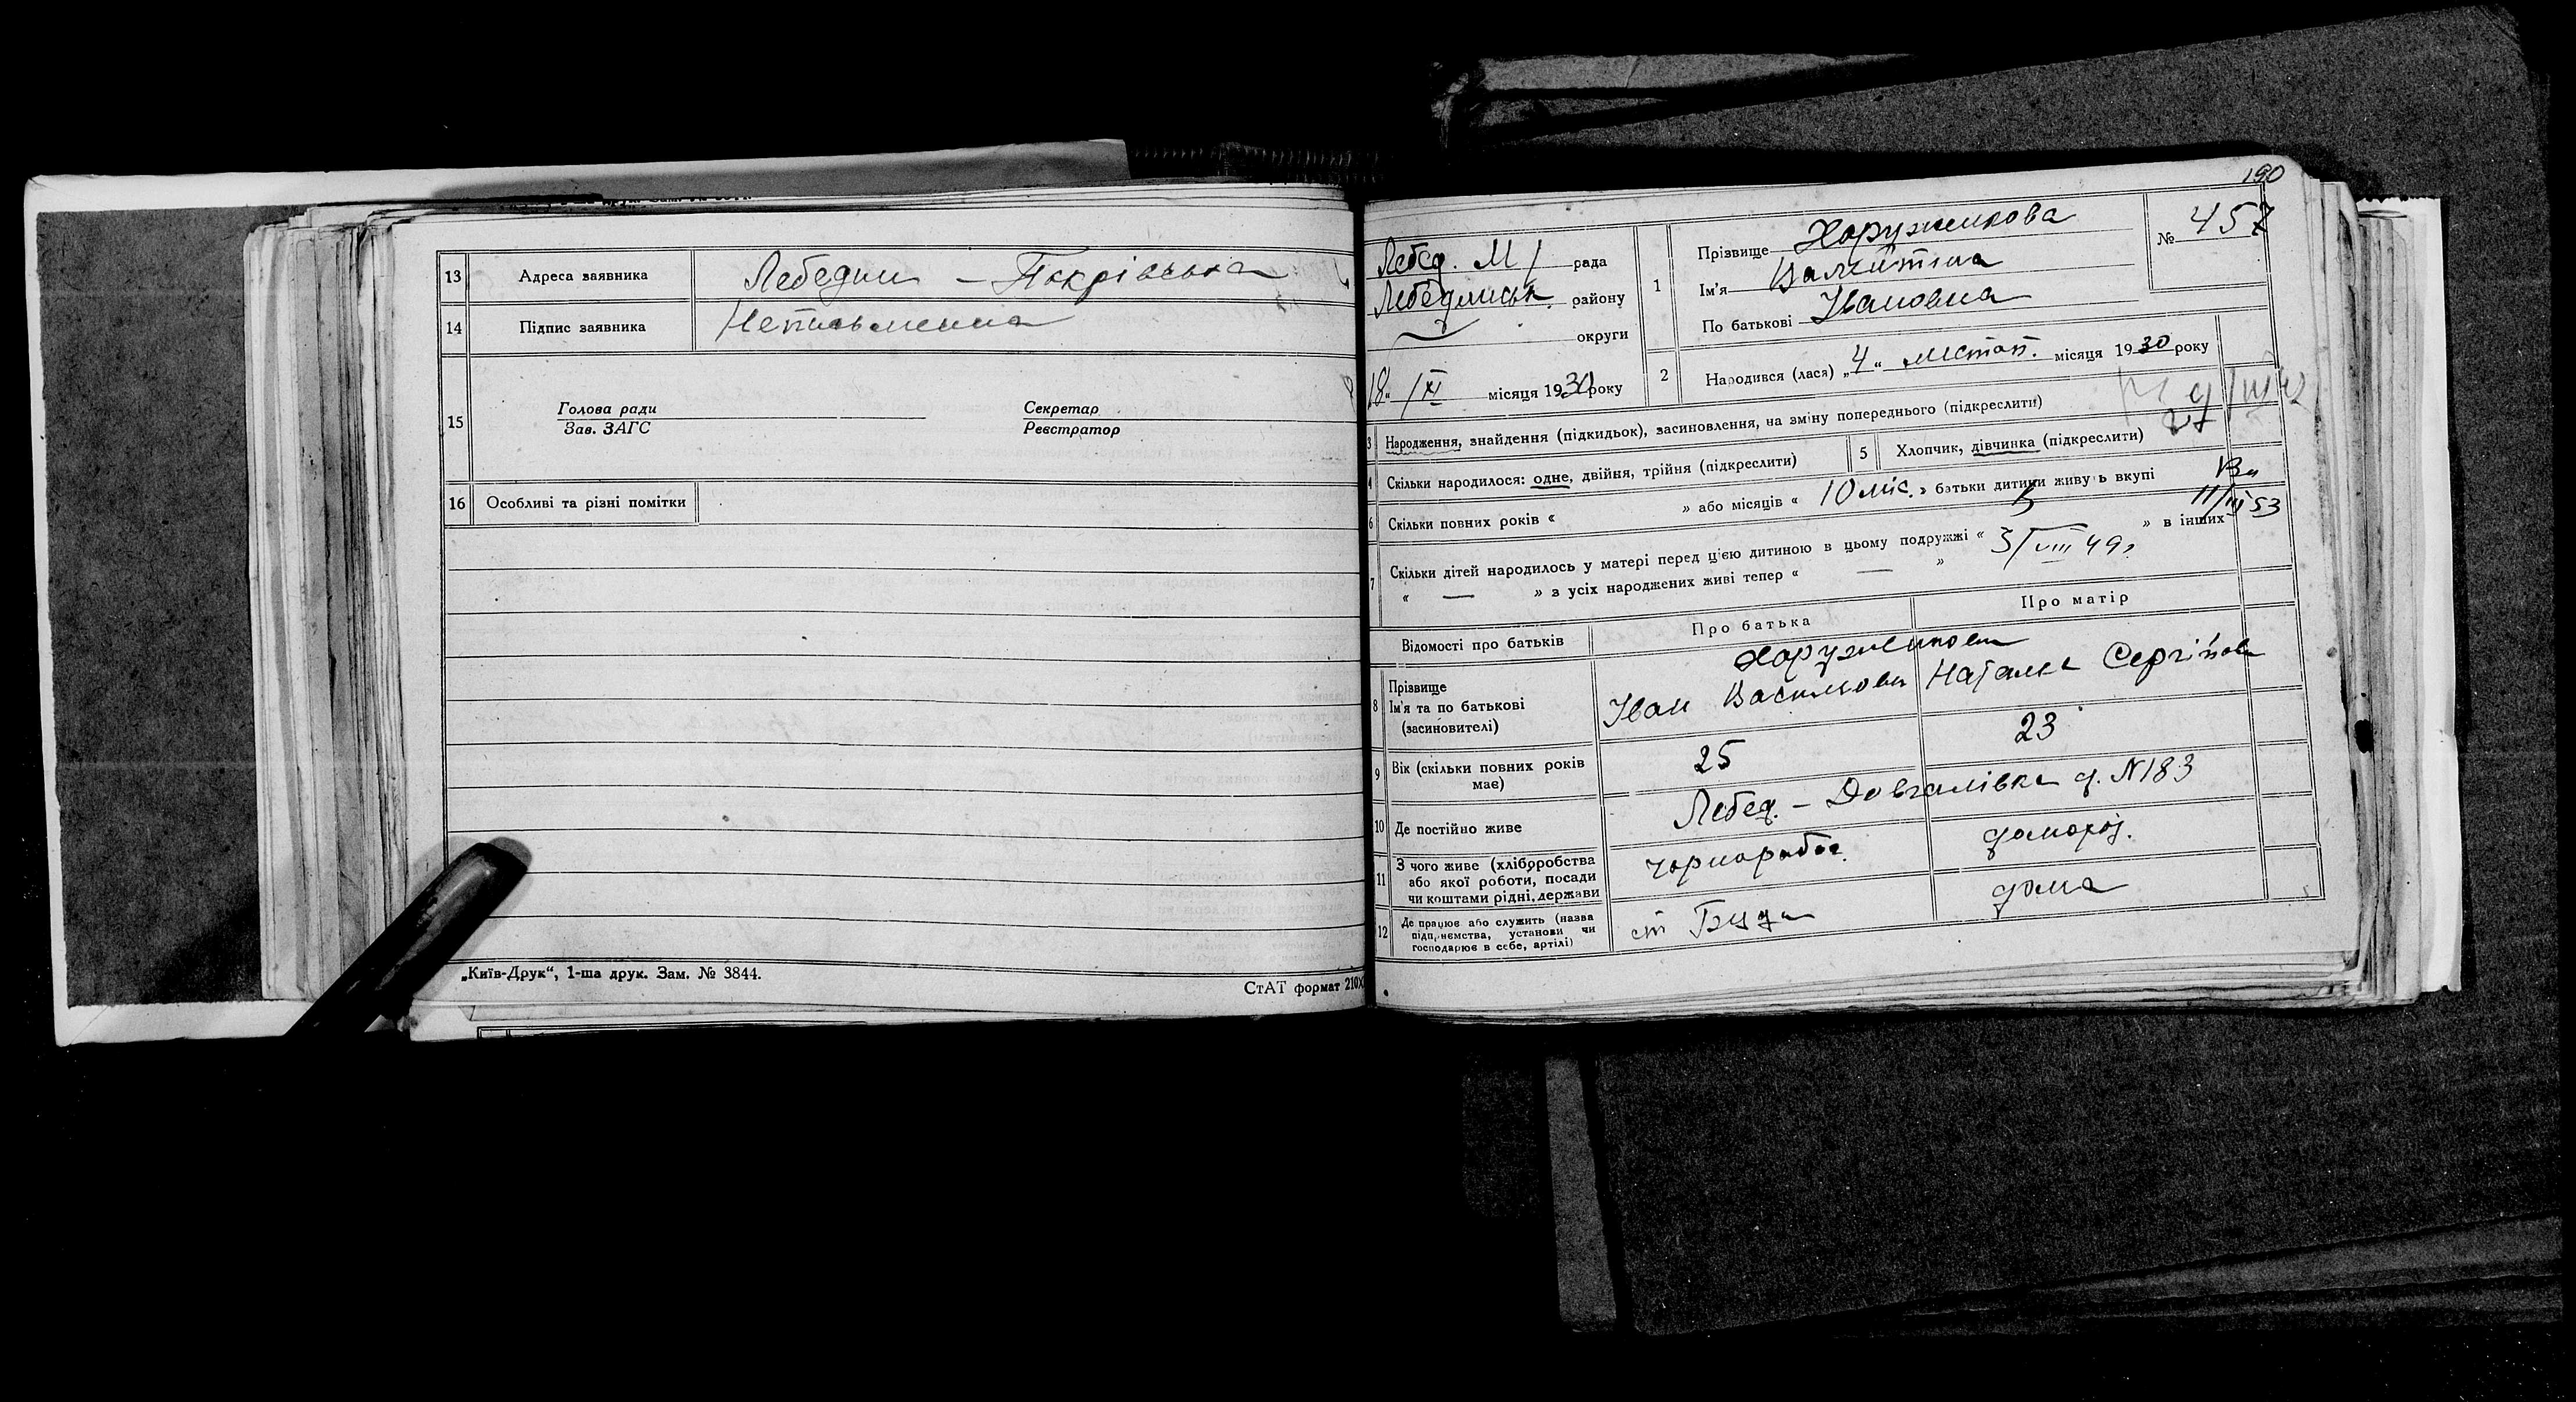 13 Адреса заявника Лебедин – Покрівська
14 Підпис заявника Неписьменна
15 Голова ради
Зав. ЗАГС
Секретар
Реєстратор
16 Особливі та різні помітки
„Київ-Друк“, 1-ша друк. Зам. № 3844.
СтАТ формат 210х
190
Лебед. М/ рада
Лебединськ. району
округи
18 „ /XI місяця 1930 року
1 Прізвище Харужикова
Ім'я Валентина
По батькові Івановна
№ 457
2 Народився (лася) „ 4 “ листоп. місяця 1930 року
3 Народження, знайдення (підкидьок), засиновлення, на зміну попереднього (підкреслити)
4 Скільки народилося: одне, двійня, трійня (підкреслити)
5 Хлопчик, дівчинка (підкреслити)
6 Скільки повних років « » або місяців « 10 міс. » батьки дитини живуть вкупі
11/III 53
7 Скільки дітей народилось у матері перед цією дитиною в цьому подружжі « » в інших
« — » з усіх народжених живі тепер « — »
3/VIII 49 г
Відомості про батьків Про батька Про матір
8 Прізвище
Ім'я та по батькові
(засиновителі)
Харужикови
Іван Василіович Наталя Сергіївна
9 Вік (скільки повних років має) 25 23
10 Де постійно живе Лебед. – Довгалівка д. N 183
11 З чого живе (хліборобства або якої роботи, посади чи коштами рідні, держави чорнороб домохоз.
12 Де працює або служить (назва підприємства, установи чи господарює в себе, артілі) ст дома